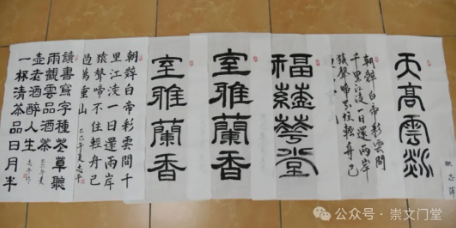 天高雲淡
朝辭白帝彩雲間
千里江陵一日還兩岸
猿聲啼不住輕舟已
福華堂
室雅蘭香
室雅蘭香
朝辭白帝彩雲間千
里江陵一日還兩岸
猿聲啼不住輕舟已
過萬重山
讀書寫字種花草聽
雨觀雲品酒茶
壺老酒醉人生
一杯清茶品日月半
公众号·崇文门堂